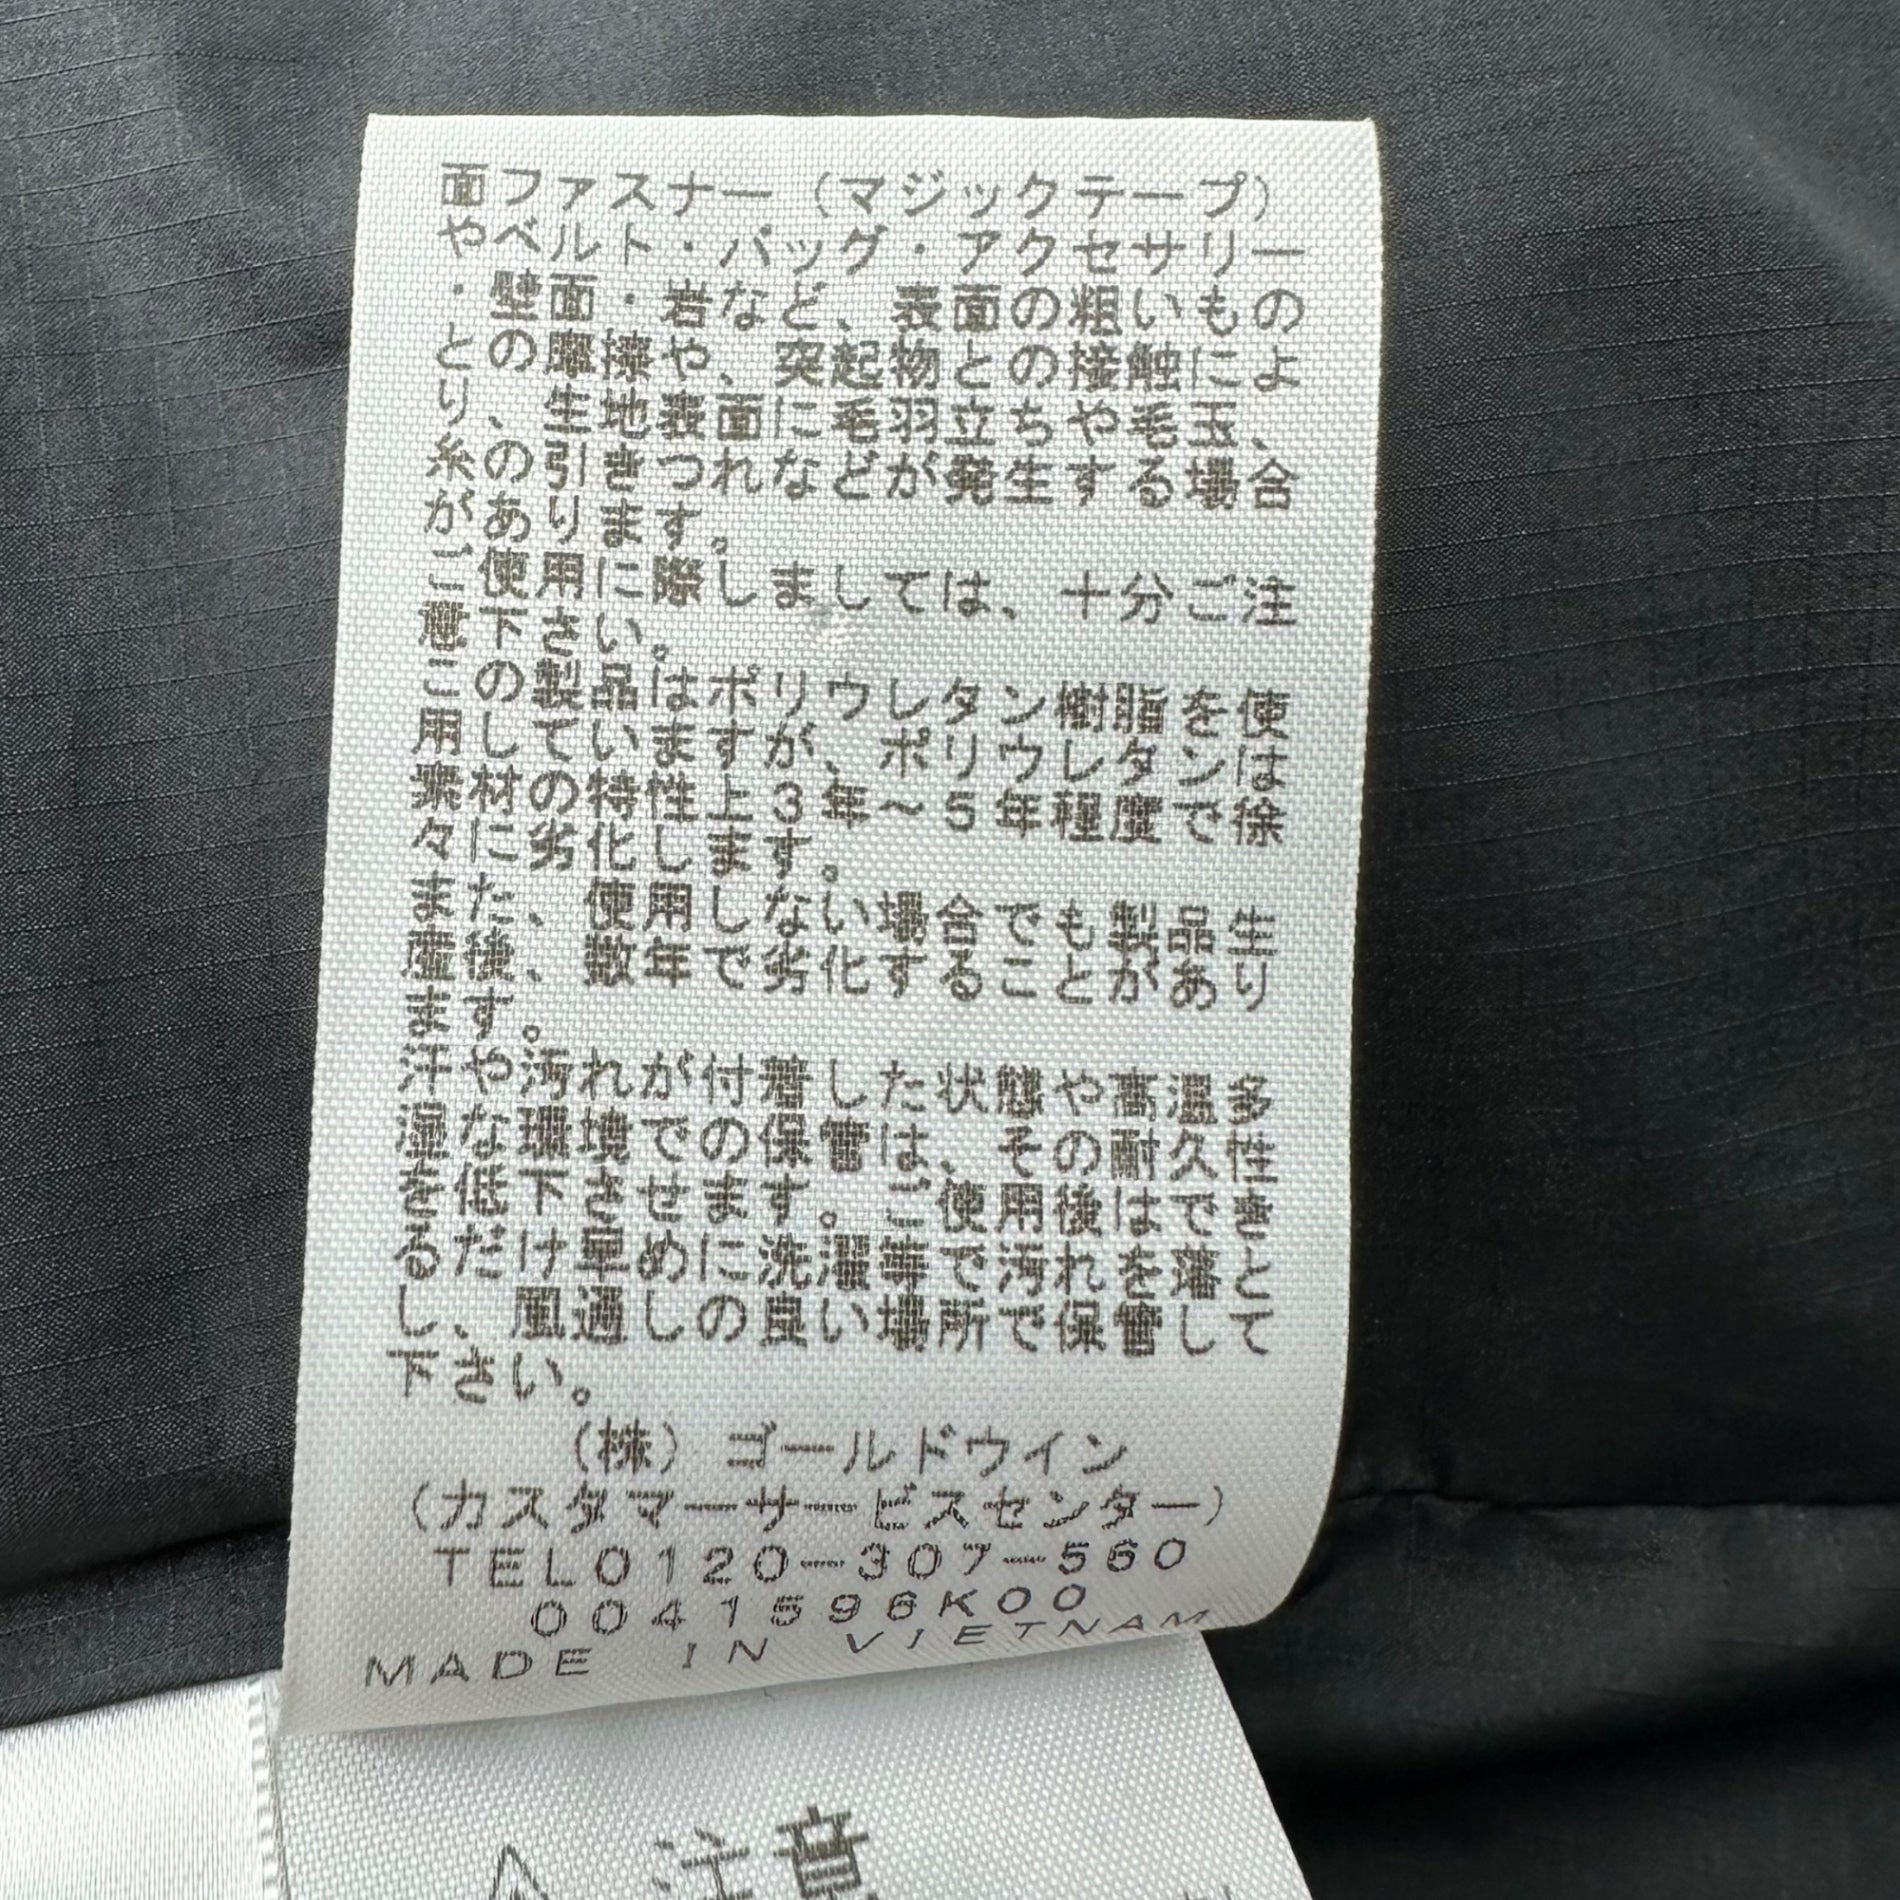 面ファスナー（マジックテープ）
やベルト・バッグ・アクセサリー
・壁面・岩など、表面の粗いもの
との摩擦や、突起物との接触によ
り、生地表面に毛羽立ちや毛玉、
糸の引きつれなどが発生する場合
があります。
ご使用に際しましては、十分ご注
意下さい。
この製品はポリウレタン樹脂を使
用していますが、ポリウレタンは
素材の特性上3年～5年程度で徐
々に劣化します。
また、使用しない場合でも製品生
産後、数年で劣化することがあり
ます。
汗や汚れが付着した状態や高温多
湿な環境での保管は、その耐久性
を低下させます。ご使用後はでき
るだけ早めに洗濯等で汚れを落と
し、風通しの良い場所で保管して
下さい。
（株）ゴールドウイン
（カスタマーサービスセンター）
TEL0120-307-560
0041596K00
MADE IN VIETNAM
注意